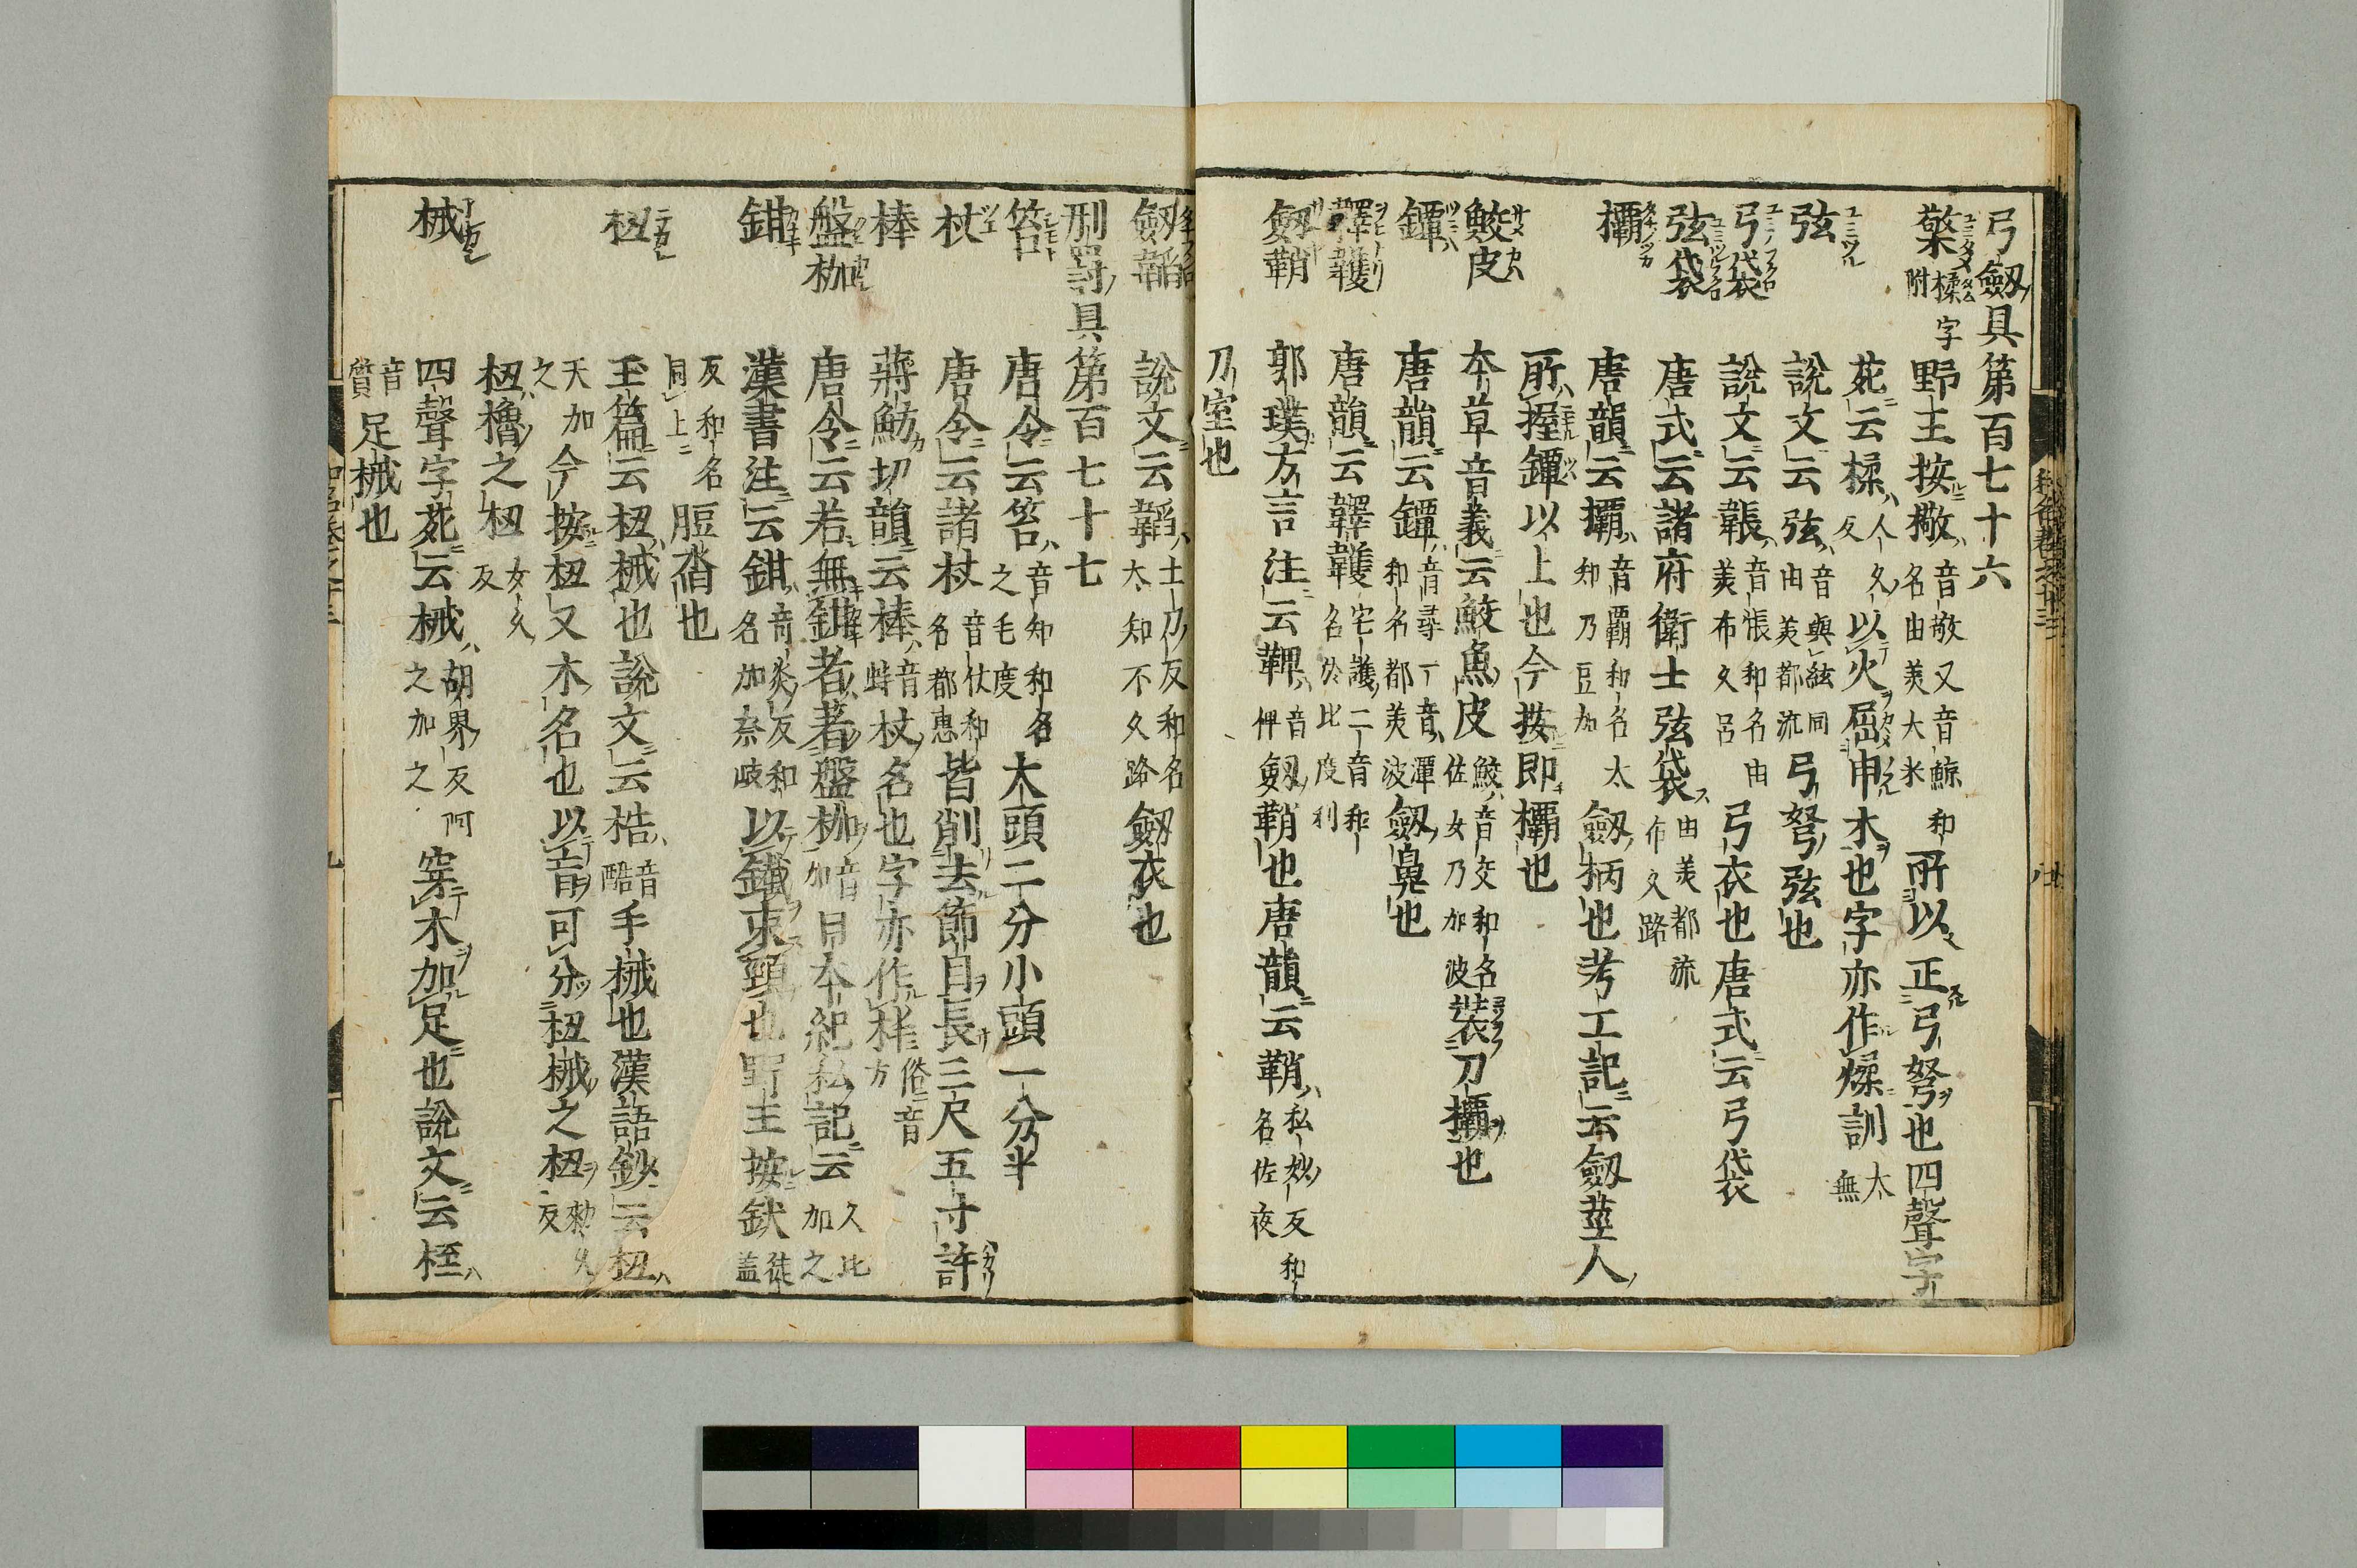 弓劔具第百七十六
檠 揉字附 野王按㯳 音敬又音鯨和名由美大米 所以正弓弩也四聲字
苑云揉 人久反 以火屈申木也字亦作煣訓 太無
弦 說文云弦 音與絃同由美都流 弓弩弦也
弓袋 說文云韔 音悵和名由美布久呂 弓衣也唐式云弓袋
弦袋 唐式云諸府衛士弦袋 由美都流布久路
欛 唐韻云欛 音覇和名太知乃豆加 劔柄也考工記云劔莖人
所握鐔以上也今按即欛也
鮫皮 本草音義云鮫魚皮 鮫音交和名佐女乃加波 裝刀欛也
鐔 唐韻云鐔 音尋一音潭和名都美波 劔鼻也
韄 唐韻云韄 二音和名於比度利
劔鞘 郭璞方言注云鞞 音俾 劔鞘也唐韻云鞘 私妙反和名佐夜
刀室也
劔韜 說文云韜 土刀反和名太知不久路 劔衣也
刑罸具第百七十七
笞 唐令云笞 音知和名之毛度 大頭二分小頭一分半
杖 唐令云諸杖 音仗和名都惠 皆削去節目長三尺五寸許
棒 蔣魴切韻云棒 音蚌 杖名也字亦作样 俗音方
盤枷 唐令云若無鉗者著盤枷 音加 日本紀私記云 久比加之
鉗 漢書注云鉗 音炎反和名加奈岐 以鐵束頸也野王按釱 徒盖
反和名同上 脛沓也
杻 玉篇云杻械也說文云梏 音酷 手械也漢語鈔云杻
天加之 今按杻又木名也以音可分杻械之杻 勅久反
杻櫓之杻 女久反
械 四聲字苑云械 胡界反阿之加之 穿木加足也說文云桎
音質 足械也